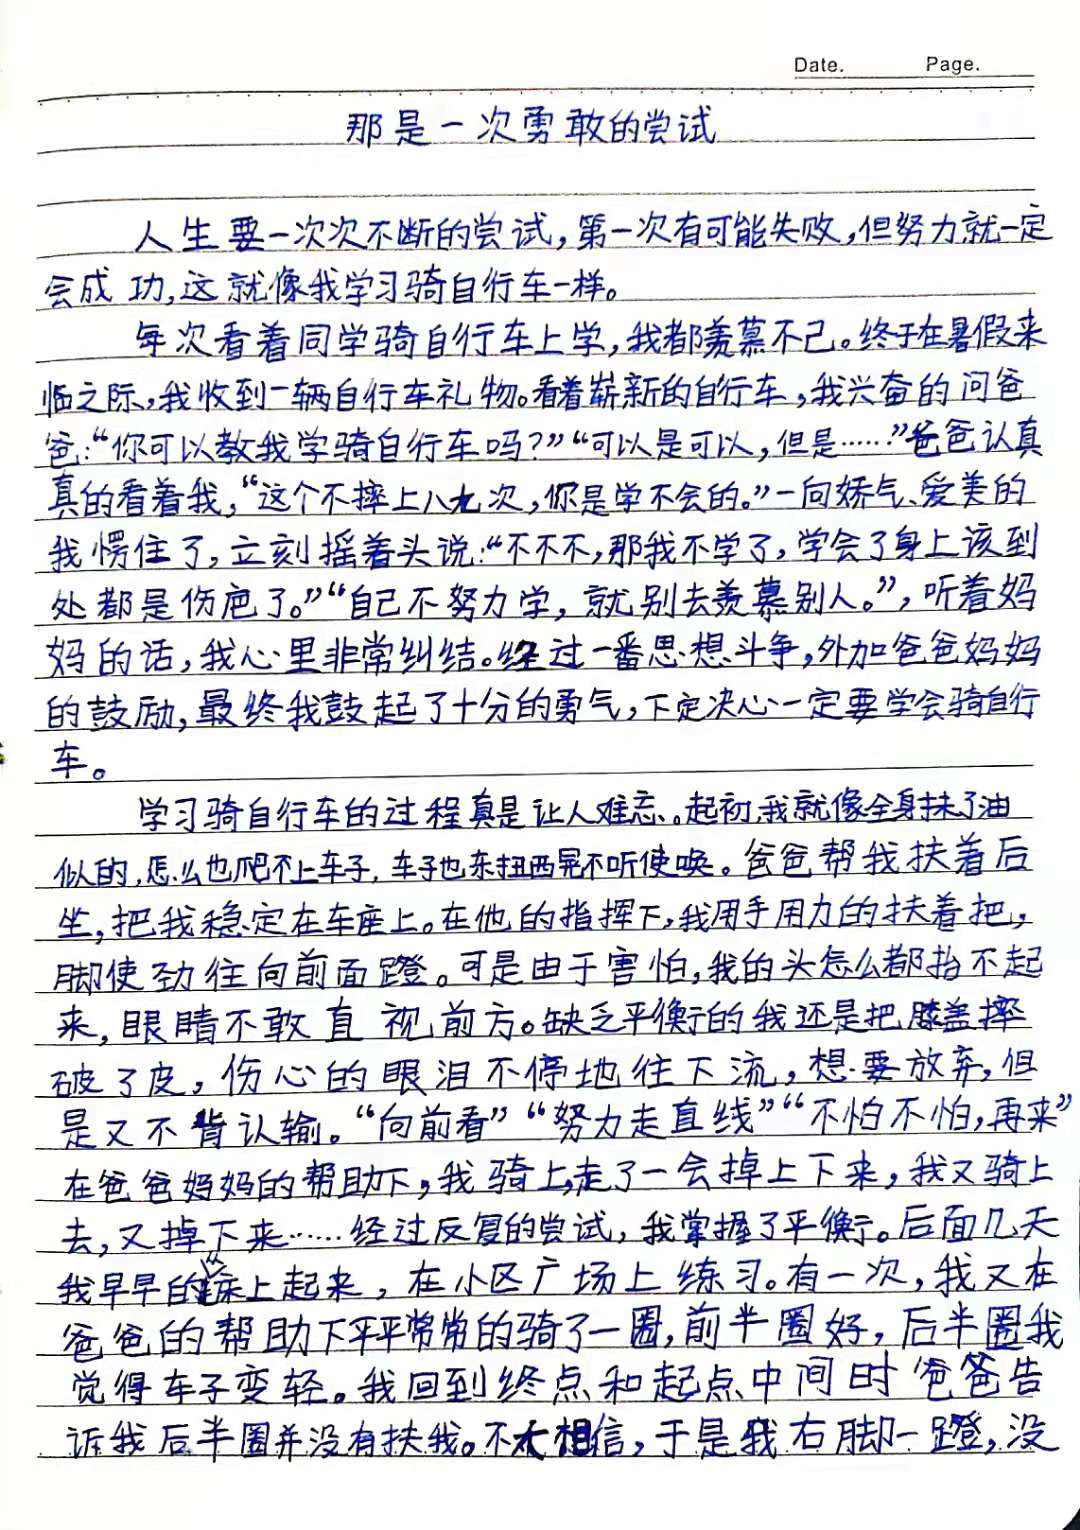 Date. Page.
那是一次勇敢的尝试
人生要一次次不断的尝试,第一次有可能失败,但努力就一定
会成功,这就像我学习骑自行车一样。
每次看着同学骑自行车上学,我都羡慕不己。终于在暑假来
临之际,我收到一辆自行车礼物。看着崭新的自行车,我兴奋的问爸
爸:“你可以教我学骑自行车吗?”“可以是可以,但是……”爸爸认真
真的看着我,“这个不摔上八九次,你是学不会的。”一向娇气、爱美的
我愣住了,立刻摇着头说:“不不不,那我不学了,学会了身上该到
处都是伤疤了。”“自己不努力学,就别去羡慕别人。”,听着妈
妈的话,我心里非常纠结。经过一番思想斗争,外加爸爸妈妈
的鼓励,最终我鼓起了十分的勇气,下定决心一定要学会骑自行
车。
学习骑自行车的过程真是让人难忘。起初,我就像全身抹了油
似的,怎么也爬不上车子,车子也东扭西晃不听使唤。爸爸帮我扶着后
坐,把我稳定在车座上。在他的指挥下,我用手用力的扶着把,
脚使劲往向前面蹬。可是由于害怕,我的头怎么都抬不起
来,眼睛不敢直视前方。缺乏平衡的我还是把膝盖摔
破了皮,伤心的眼泪不停地往下流,想要放弃,但
是又不肯认输。“向前看”“努力走直线”“不怕不怕,再来”
在爸爸妈妈的帮助下,我骑上,走了一会掉上下来,我又骑上
去,又掉下来……经过反复的尝试,我掌握了平衡。后面几天
我早早的从床上起来,在小区广场上练习。有一次,我又在
爸爸的帮助下平平常常的骑了一圈,前半圈好,后半圈我
觉得车子变轻。我回到终点和起点中间时爸爸告
诉我后半圈并没有扶我。不太相信,于是我右脚一蹬,没